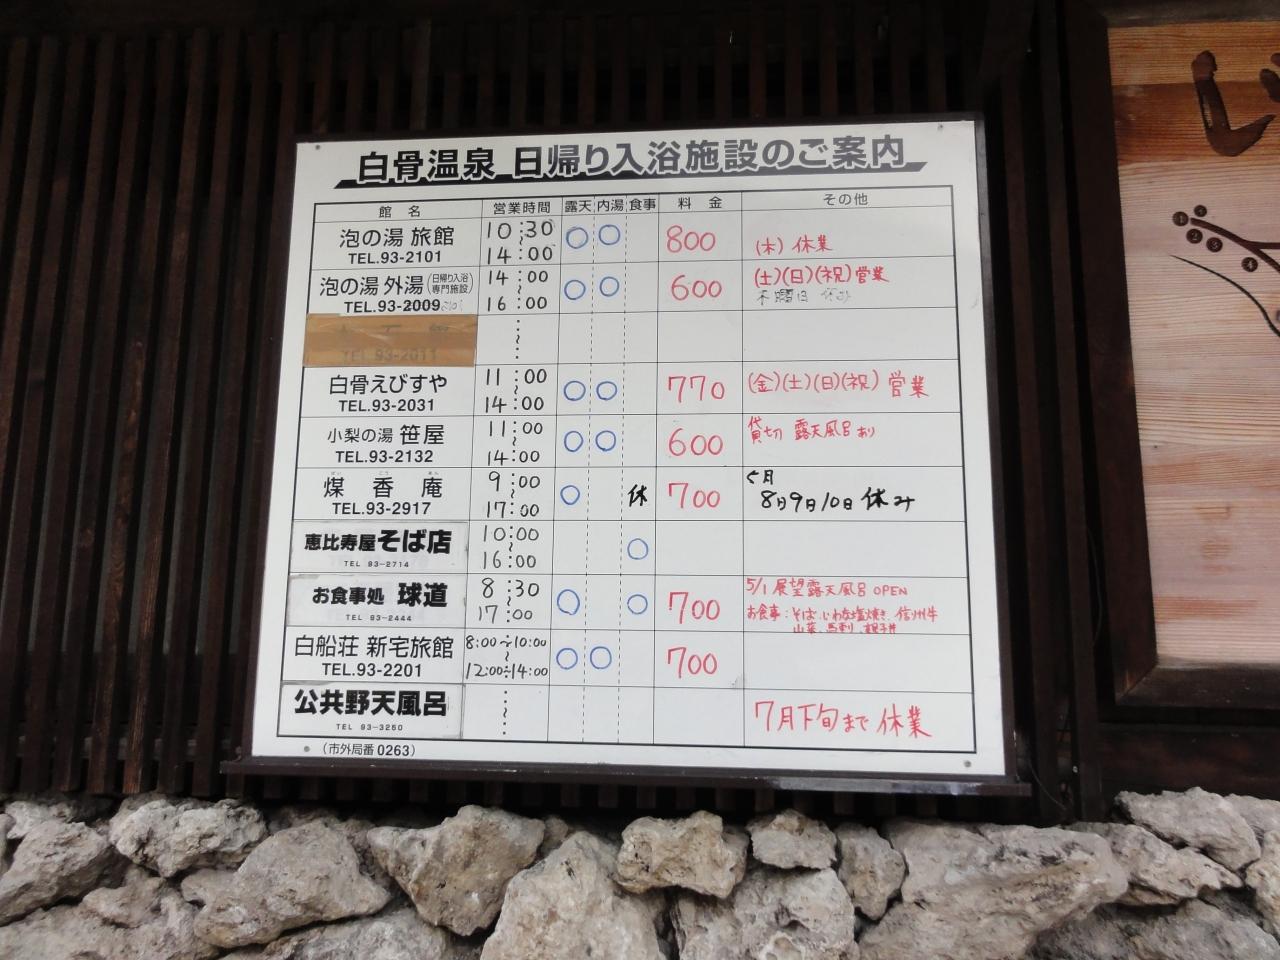 白骨温泉 日帰り入浴施設のご案内
館名 営業時間 露天 内湯 食事 料金 その他
泡の湯 旅館 TEL.93-2101 10:30 ~ 14:00 ○ ○ 800 (木) 休業
泡の湯 外湯 (日帰り入浴専門施設) TEL.93-2009 14:00 ~ 16:00 ○ ○ 600 (土)(日)(祝)営業
木曜日 休み
TEL.93-2011
白骨えびすや TEL.93-2031 11:00 ~ 14:00 ○ ○ 770 (金)(土)(日)(祝) 営業
小梨の湯 笹屋 TEL.93-2132 11:00 ~ 14:00 ○ ○ 600 貸切 露天風呂あり
煤香庵 TEL.93-2917 9:00 ~ 17:00 ○ 休 700 5月
8日9日10日 休み
恵比寿屋そば店 TEL 93-2714 10:00 ~ 16:00 ○
お食事処 球道 TEL 93-2444 8:30 ~ 17:00 ○ ○ 700 5/1 展望露天風呂 OPEN
お食事:そば、いわな塩焼き、信州牛
山菜、馬刺、親子丼
白船荘 新宅旅館 TEL.93-2201 8:00~10:00 ~ 12:00~14:00 ○ ○ 700
公共野天風呂 TEL 93-3250 7月下旬まで 休業
(市外局番 0263)
い